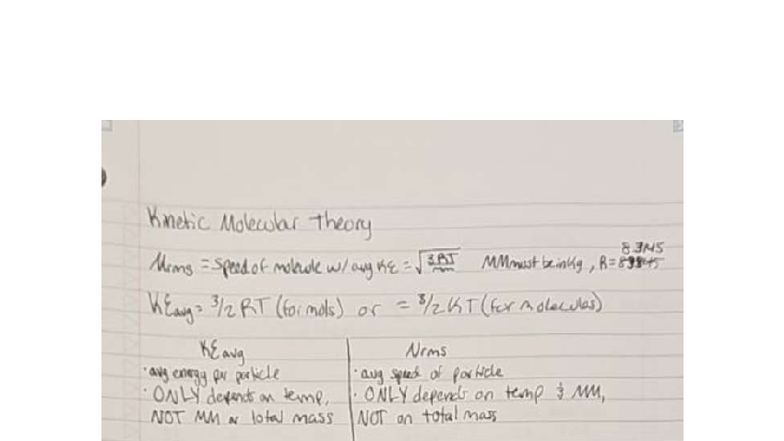 Kinetic Molecular Theory
8.3145
μrms = speed of molecule w/ avg KE = √3RT/mm MM must be in kg, R =
KEavg = 3/2 RT (for mols) or = 3/2 KT (for molecules)
KEavg | μrms
· avg energy per particle | · avg speed of particle
· ONLY depends on temp, | · ONLY depends on temp & MM,
NOT MM or total mass | NOT on total mass